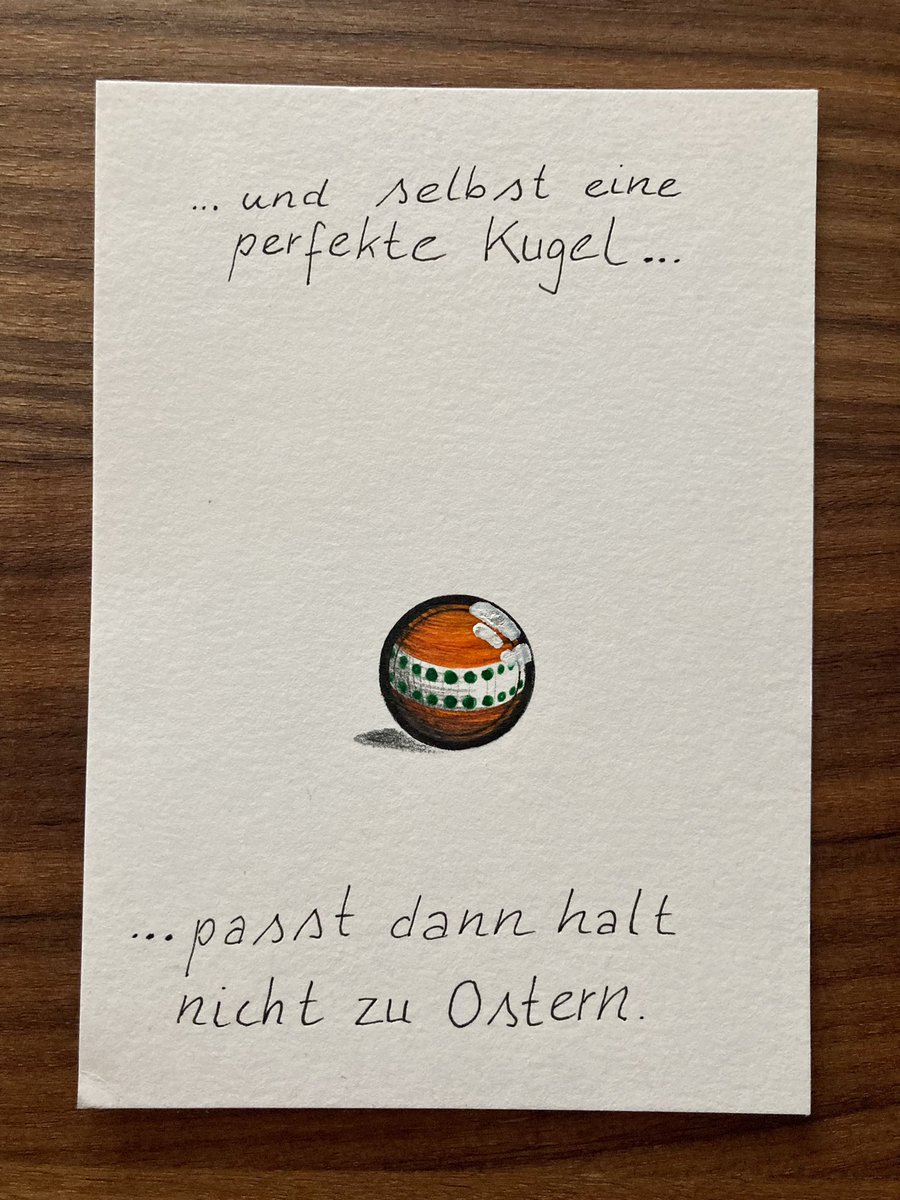 ... und selbst eine
perfekte Kugel...
...passt dann halt
nicht zu Ostern.